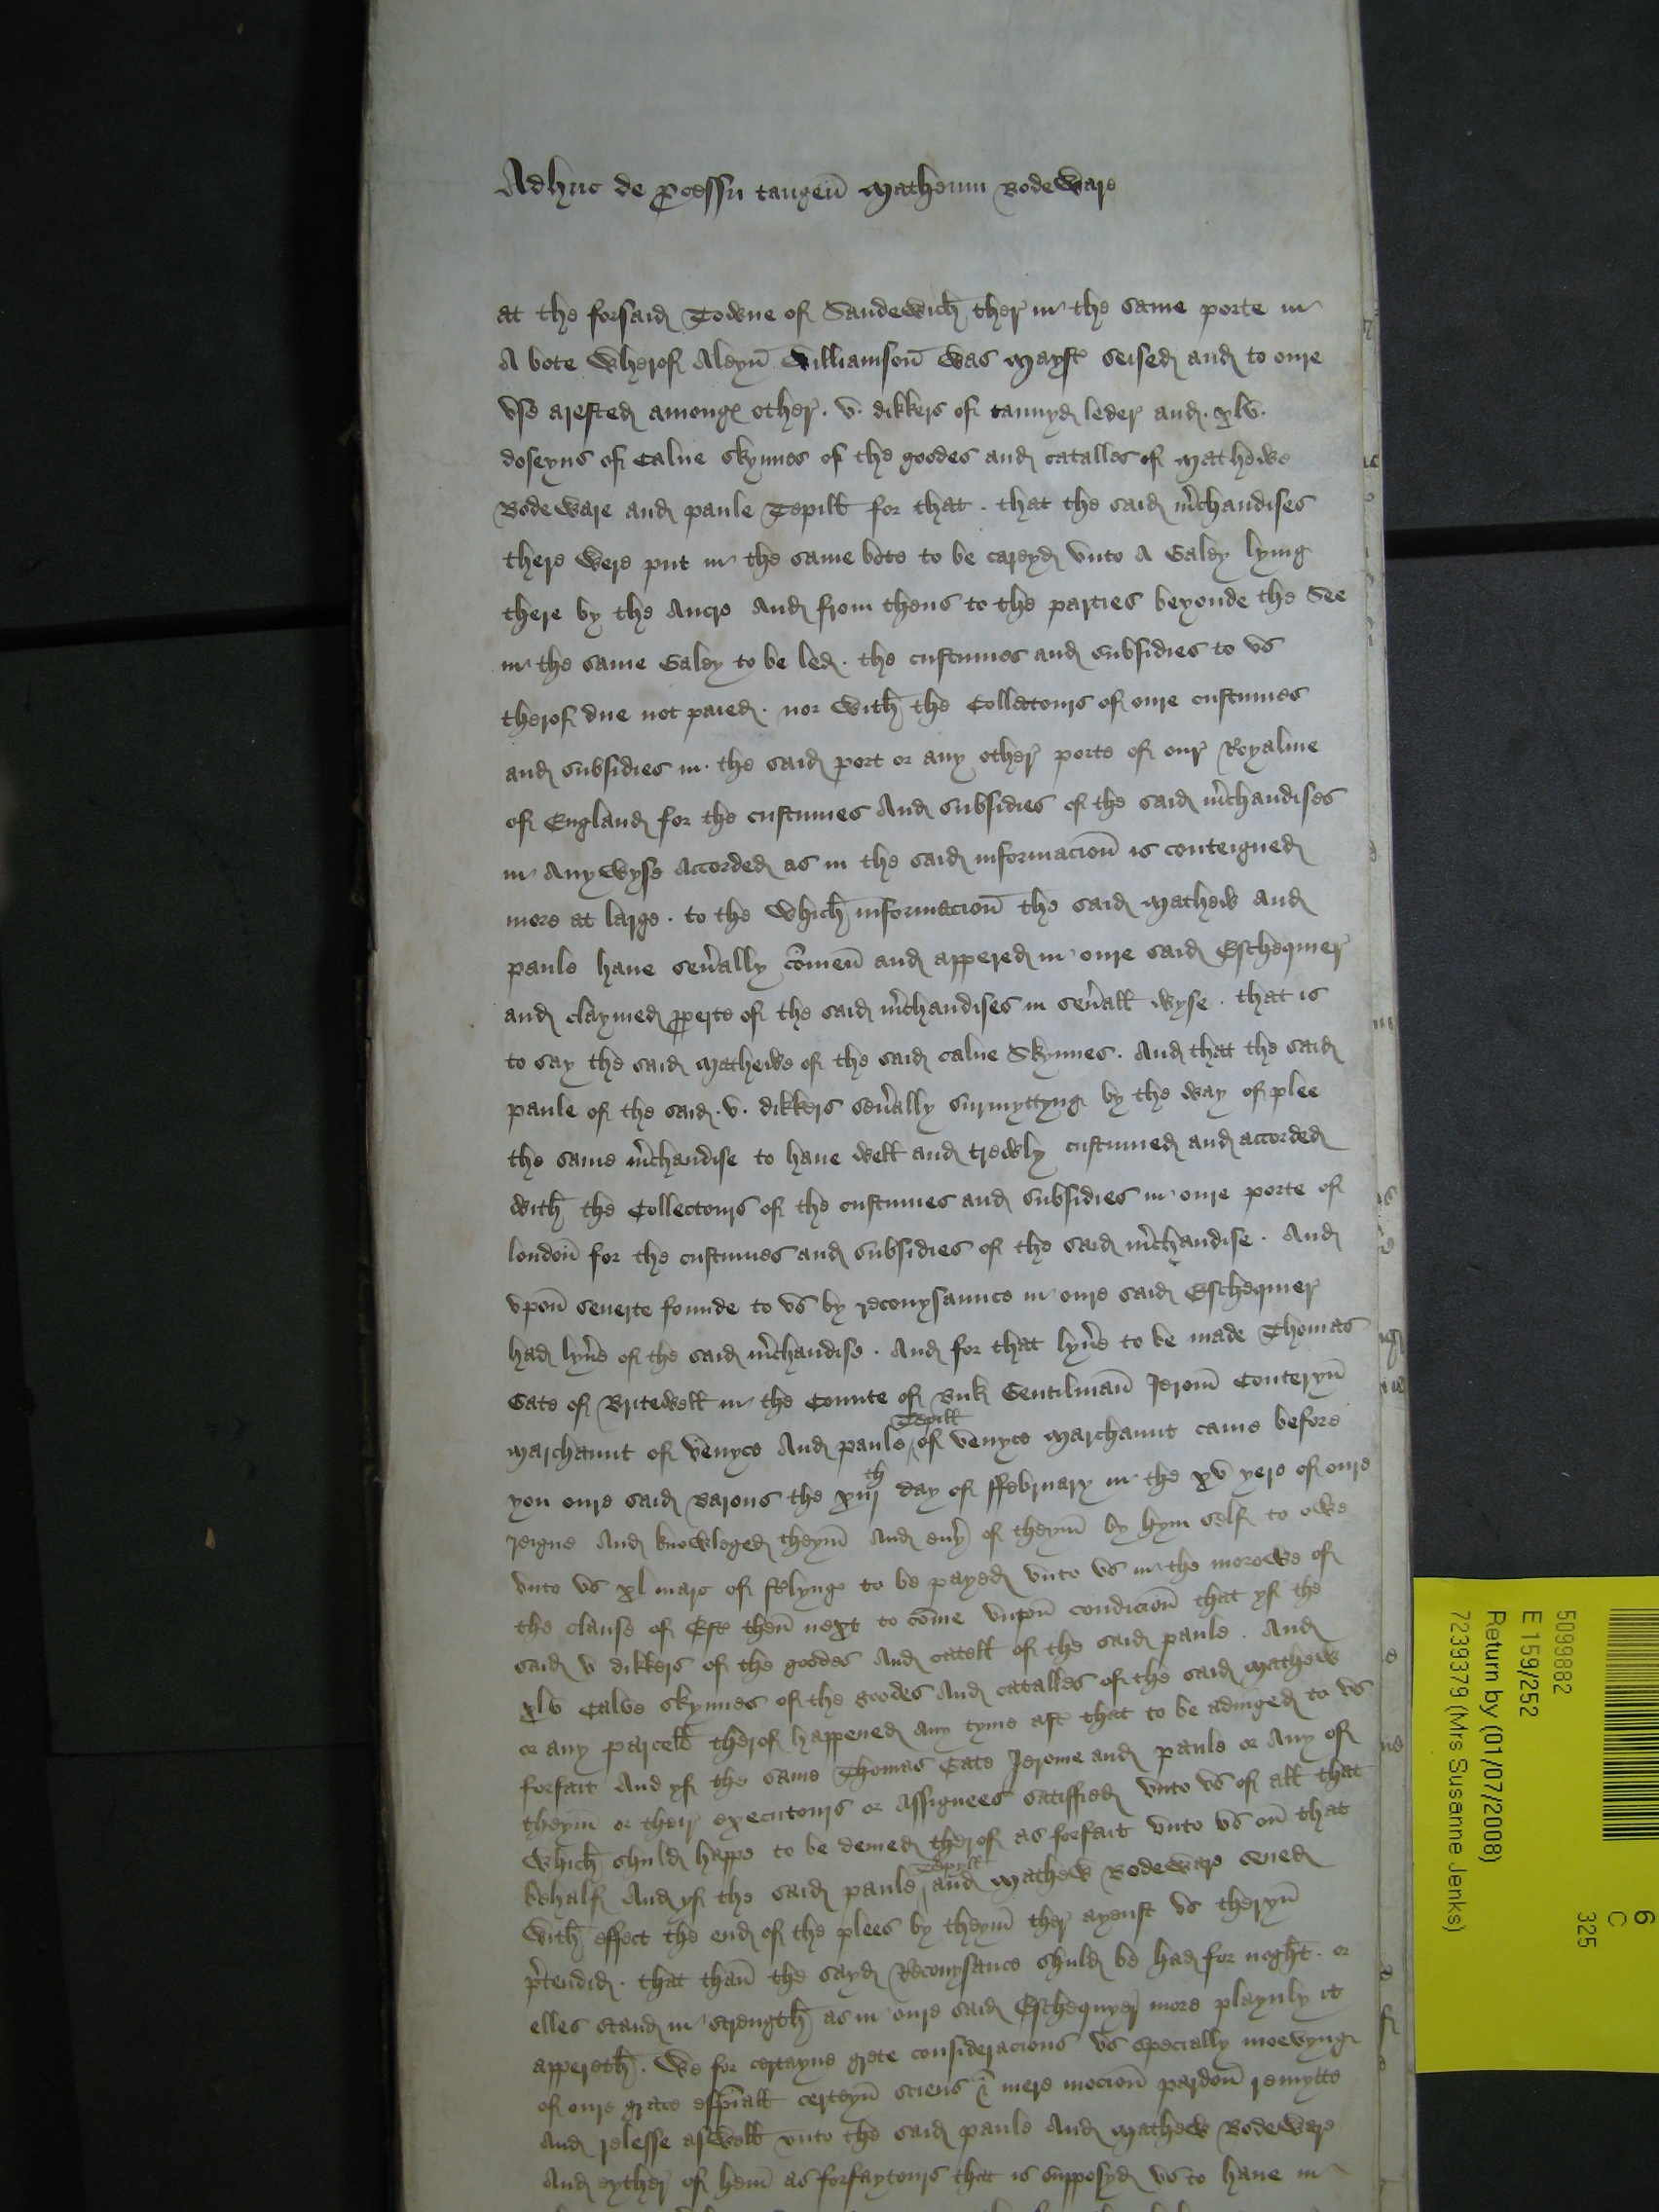 Adhuc de ꝓcessu tangeñ Matheum Bodeware
at the forsaid Towne of Sandewich ther in the same porte in
A bote wherof Aleyn Williamson was mayst seised and to oure
vse arested among other . v . dikkers of tannyd leder and . xlv .
doseyns of Calue skynnes of the goodes and catalles of Mathewe
Bodeware and paule Tepill for that . that the said mchandises
there were put in the same bote to be careyd vnto A Galey lying
there by the Ancre And from thens to the parties beyonde the See
in the same Galey to be led . the custumes and subsidies to vs
therof due not paied . nor with the Collectours of oure custumes
and subsidies in the said port or any other porte of our Royalme
of England for the custumes And subsidies of the said mchandises
in Any wyse Accorded as in the said informacion is conteigned
more at large . to the which informacion the said Mathew and
paule haue seually comen and appered in oure said Eschequier
and claymed ꝓperte of the said mchandises in seuall wyse . that is
to say the said Mathewe of the said calue Skynnes . And that the said
paule of the said . v . dikkers seually surmyttyng by the way of plee
the same mchandise to haue well and trewly custumed and accorded
with the Collectours of the custumes and subsidies in oure porte of
london for the custumes and subsidies of the said mchandise . And
vpon seuerte founde to vs by reconysaunce in oure said Eschequier
had lyue of the said mchandise . And for that lyue to be made Thomas
Gate of Britewell in the Counte of Buk Gentilman Jerom Conteryn
Marchaunt of venyce And paule Tepill of venyce Marchaunt came before
you oure said Barons the xiiij th day of ffebruary in the xv yere of oure
reigne And knowleged theym And euy of theym by hym self to owe
vnto vs xl marc of stlynge to be payed vnto vs in the morowe of
the clause of Est then next to come vnpon condicion that yf the
said v dikkers of the goodes And catell of the said paule . And
xlv Calue skynnes of the goodes And catalles of the said Mathew
or any parcell therof happened Any tyme aft that to be adiuged to vs
forfait And yf the same Thomas Gate Jerome and paule or Any of
theym or their executours or Assignees satisfied vnto vs of all that
which shuld happe to be demed therof as forfait vnto vs on that
behalf And yf the said paule Tepyll and Mathew Bodeware sened
with effect the end of the plees by theym ther ayenst vs theryn
ptendid . that than the sayd Reconysance shuld be had for noght . or
elles stand in strength as in oure said Eschequyer more playnly it
appereth . We for certayne grete consideracions vs specially moevyng
of oure grace espiall certeyn sciens & mere mocion pardon remytte
And relesse aswell vnto the said paule And Mathew Bodeware
And eyther of hem as forfaytours that is supposyd vs to haue in
5099882
E 159/252
Return by (01/07/2008)
7239379 (Mrs Susanne Jenks)
6
C
325